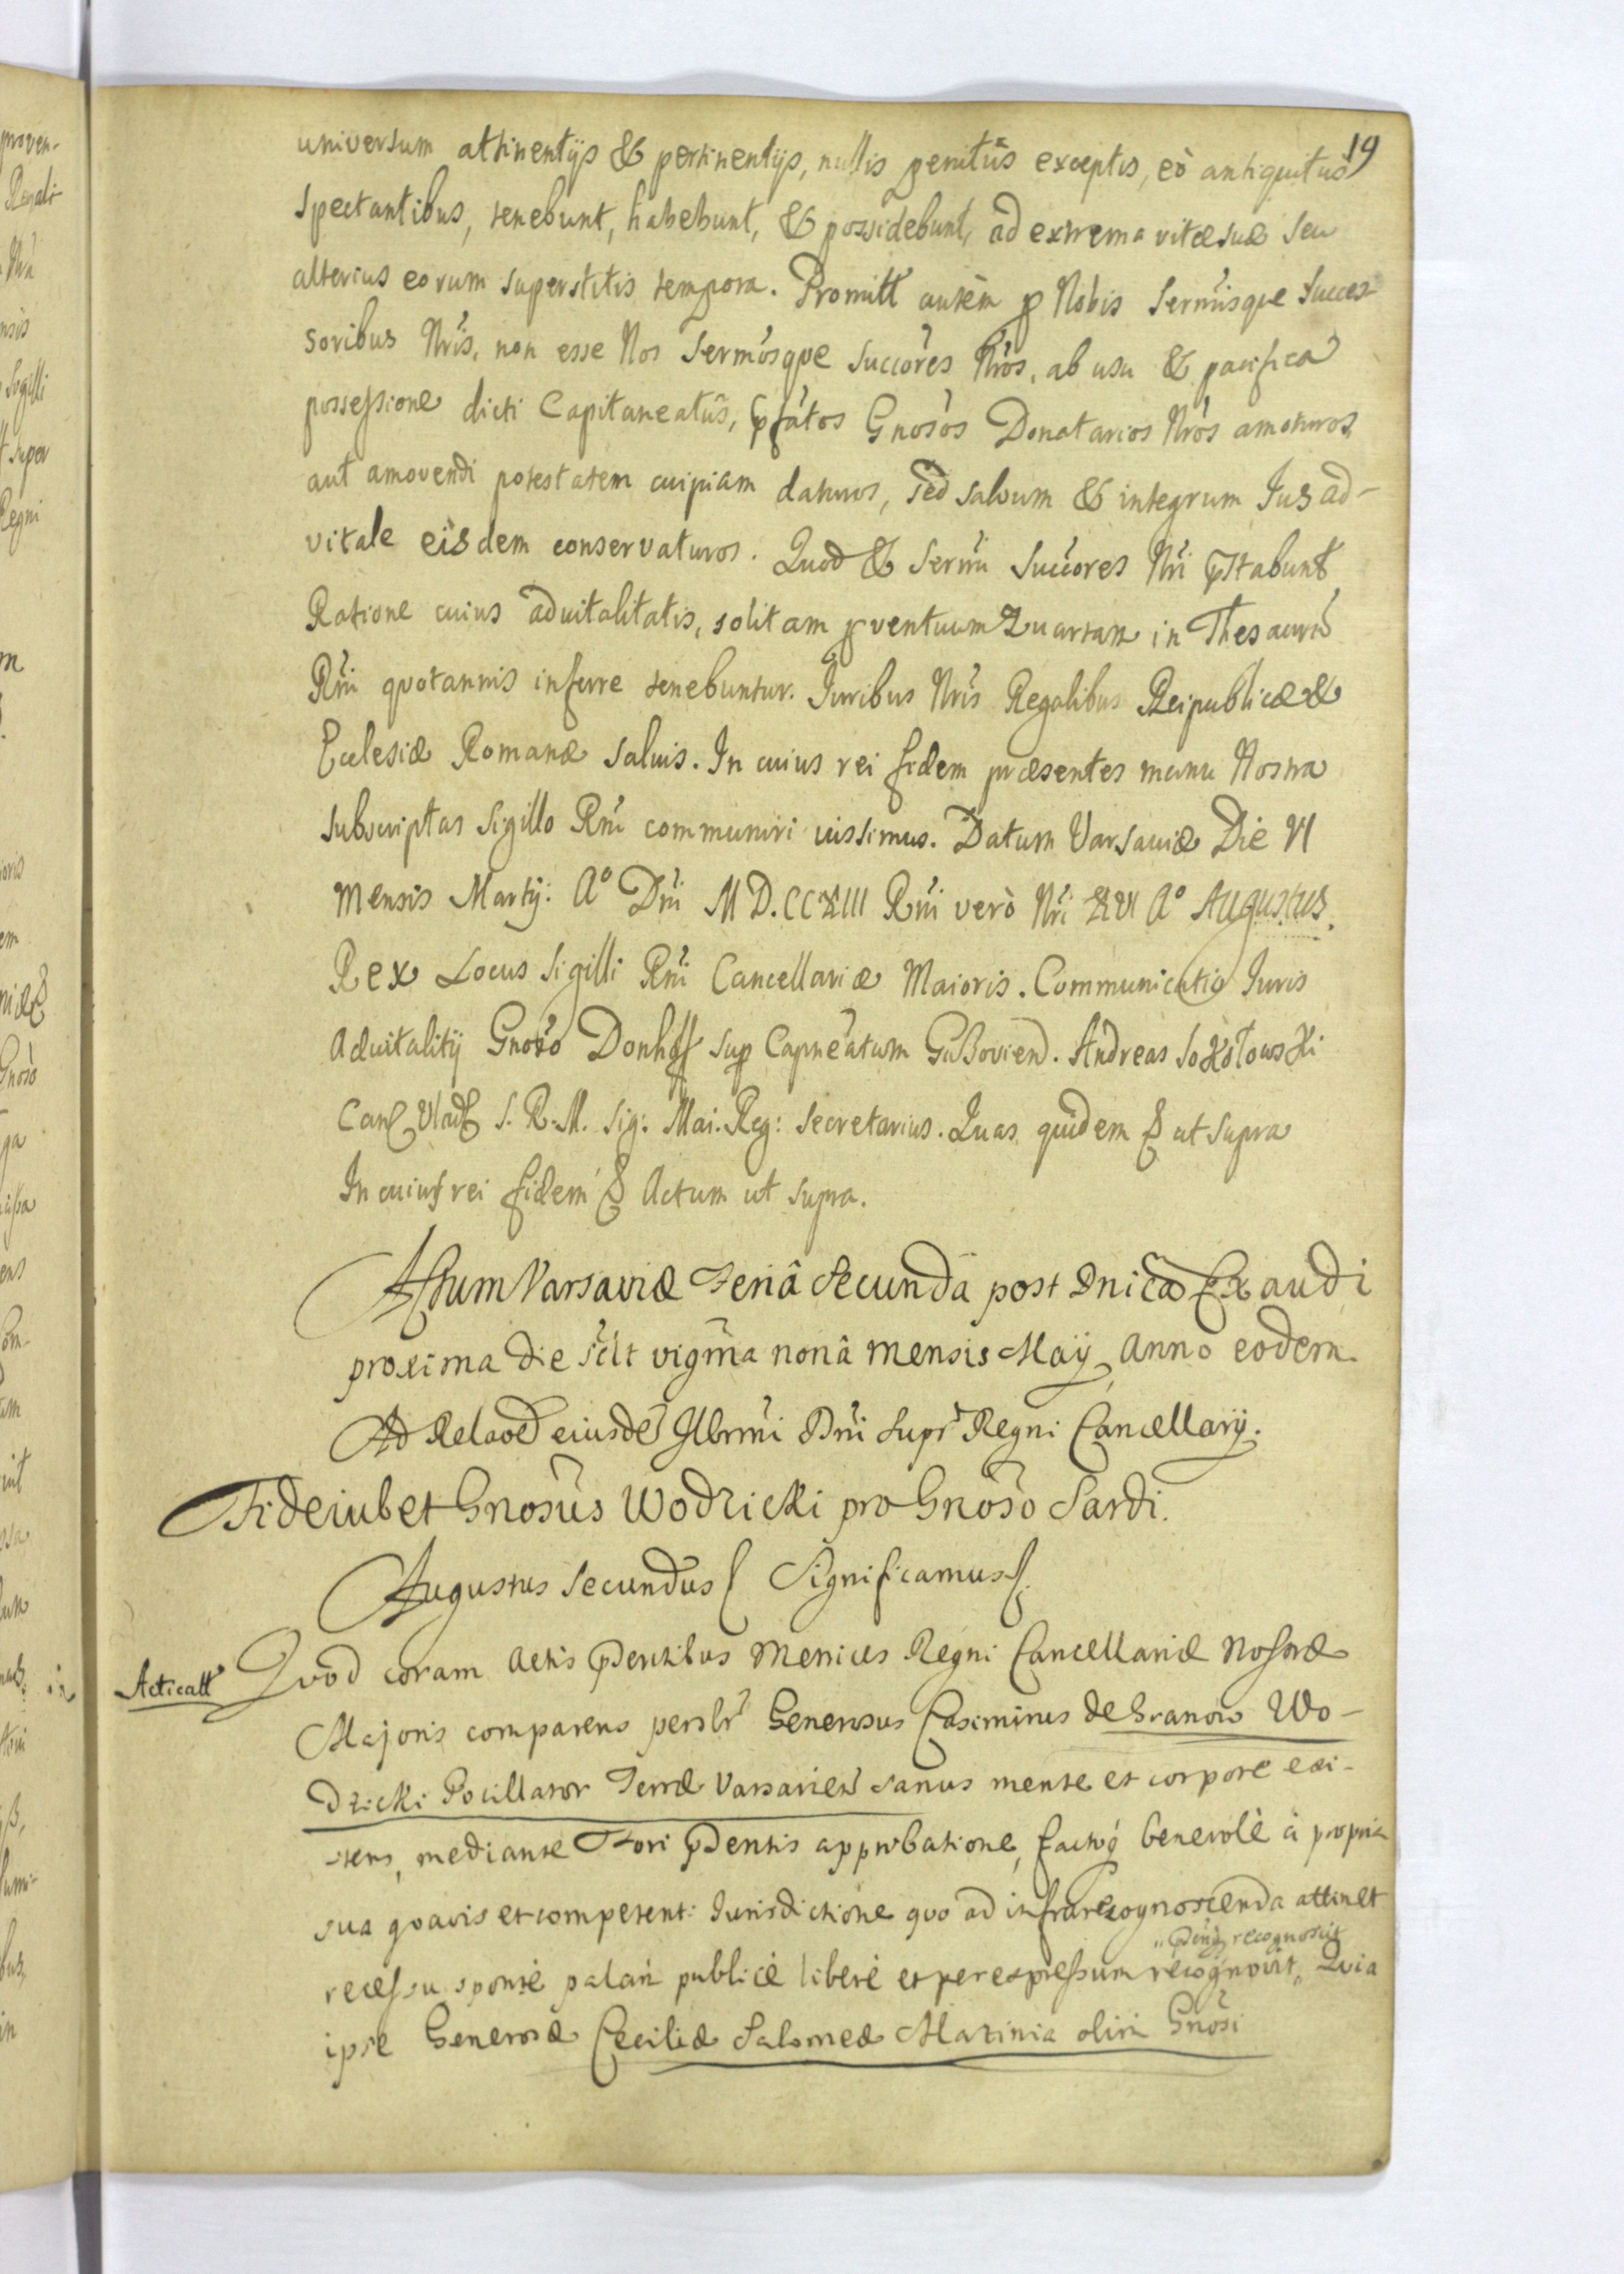 19
universum attinentijs & pertinentijs, nullis penitus exceptis, eò antiquitus
spectantibus, tenebunt, habebunt, & possidebunt, ad extrema vitæ suæ seu
alterius eorum superstitis tempora. Promitt autèm p Nobis Sermisque Succes-
soribus Nris, non esse Nos Sermosque Succores Nros, ab usu & pacifica
possessione dicti Capitaneatus, pfatos Gnosos Donatarios Nros amoturos,
aut amovendi potestatem cuipiam daturos, sed salvum & integrum Jus ad-
vitale eisdem conservaturos. Quod & Sermi Succores Nri pstabunt
Ratione cuius advitalitatis, solitam pventuum Quartam in Thesaurũ
Rni quotannis inferre tenebuntur. Juribus Nris Regalibus Reipublicæ &
Ecclesiæ Romanæ salvis. In cuius rei fidem præsentes manu Nostra
subscriptas Sigillo Rni communiri iussimus. Datum Varsaviæ Die VI
mensis Martij: Aº Dni M D.CCXIII Rni verò Nri XVI Aº Augustus
Rex Locus Sigilli Rni Cancellariæ Maioris. Communicatio Juris
Advitalitij Gnoso Donhoff sup Capneatum Guzoviens. Andreas Sokołowski
S. R. M. Sig: Mai. Reg: Secretarius. Quas quidem & ut supra
In cuius rei fidem & Actum ut supra.
Actum Varsaviæ Feriâ Secunda post Dnicã Exaudi
proxima die scilt vigma nonâ mensis Maij Anno eodem.
Ad Relaoẽ eiusdẽ Illrmi Dni Supr Regni Cancellarij.
Fideiubet Gnosus Wodzicki pro Gnoso Sardi.
Augustus Secundus Significamus
Acticatt
Quod coram Actis pdentibus Metrices Regni Cancellariæ Nostræ
Majoris comparens persLr Generosus Casimirus de Granow Wo-
dzicki Pocillator Terræ Varsavien sanus mente et corpore exi-
stens, mediante Fori pdentis approbatione, factoq benevolè à propria
sua quavis et competent: Jurisdictione quo ad infrarecognoscenda attinet
recessu sponte palam publicè liberè et per expressum recognovit, Quia
recognoscit
ipse Generosæ Ceciliæ Salomeæ Marinia olim Gnosi